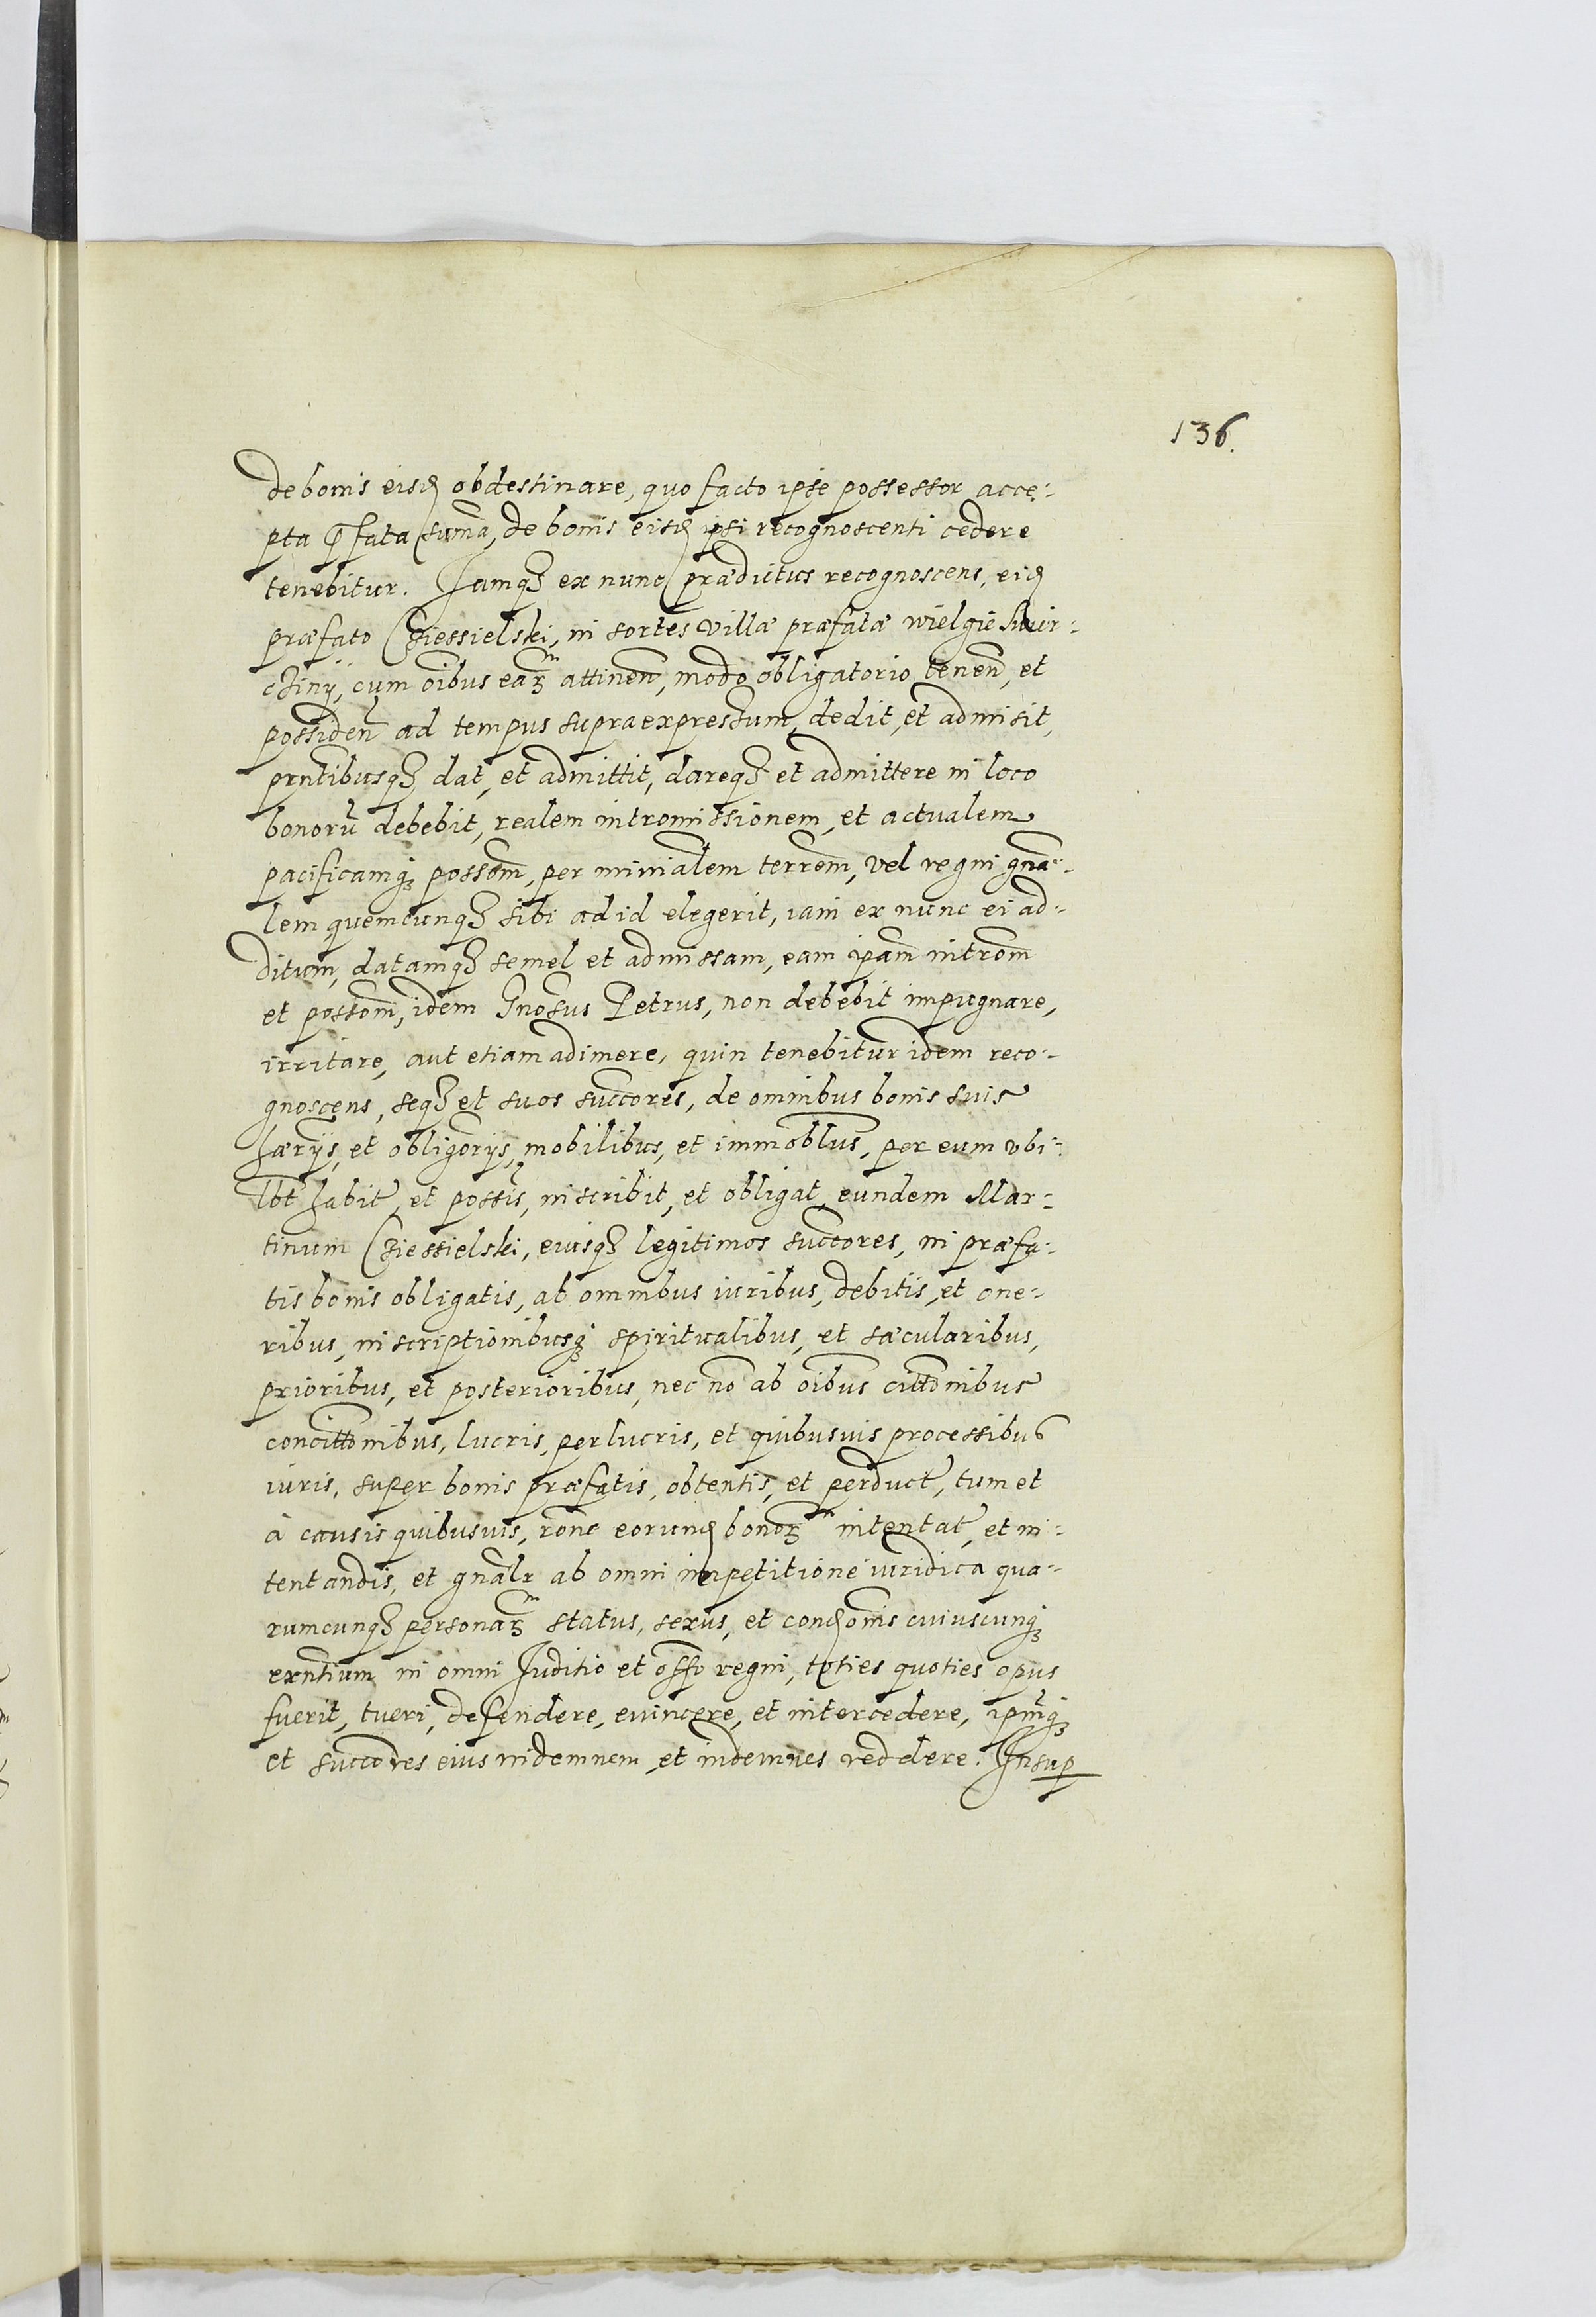 136.
de bonis eisd obdestinare, quo facto ipse possessor acce-
pta pfata suma, de bonis eisd ipsi recognoscenti cedere
tenebitur. Jamq ex nunc prædictus recognoscens, eid
præfato Cziessielski, in sortes villæ præfatæ wielgie
cum oibus earz attinen, modo obligatorio tenen, et
possiden ad tempus supraexpressum, dedit, et admisit,
prntibusq dat, et admittit, dareq et admittere in loco
bonorũ debebit, realem intromissionem, et actualem
pacificamq possom, per minialem terrem, vel regni gna-
lem quemcunq sibi ad id elegerit, iam ex nunc ei ad-
ditum, datamq semel et admissam, eam ipam introm
et possom, idem Gnosus Petrus, non debebit impugnare,
irritare, aut etiam adimere, quin tenebitur idem reco-
gnoscens, seq et suos succores, de omnibus bonis suis
hærijs, et obligorijs, mobilibus, et immoblus, per eum vbi-
lbt habit, et possis, inscribit, et obligat, eundem Mar-
tinum Cziessielski, eiusq legitimos succores, in præfa-
tis bonis obligatis, ab omnibus iuribus, debitis, et one-
ribus, inscriptionibusq spiritualibus, et sæcularibus,
prioribus, et posterioribus, nec no ab oibus cittonibus
concittonibus, lucris, perlucris, et quibusuis processibus
iuris, super bonis præfatis, obtentis, et perduct, tum et
à causis quibusuis, rone eorund bonorz intentat, et in-
tentandis, et gnalr ab omni impetitione iuridica qua-
rumcunq personarz status, sexus, et condonis cuiuscunq
exntium in omni Juditio et offo regni, toties quoties opus
fuerit, tueri, defendere, euincere, et intercedere, ipmq
et succores eius indemnem, et indemnes reddere. Insup